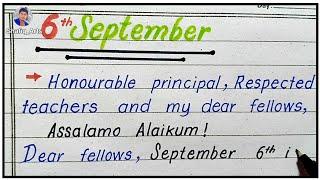 Day:
Shafiq_Arts
6th September
→ Honourable principal, Respected
teachers and my dear fellows,
Assalamo Alaikum!
Dear fellows, September 6th i